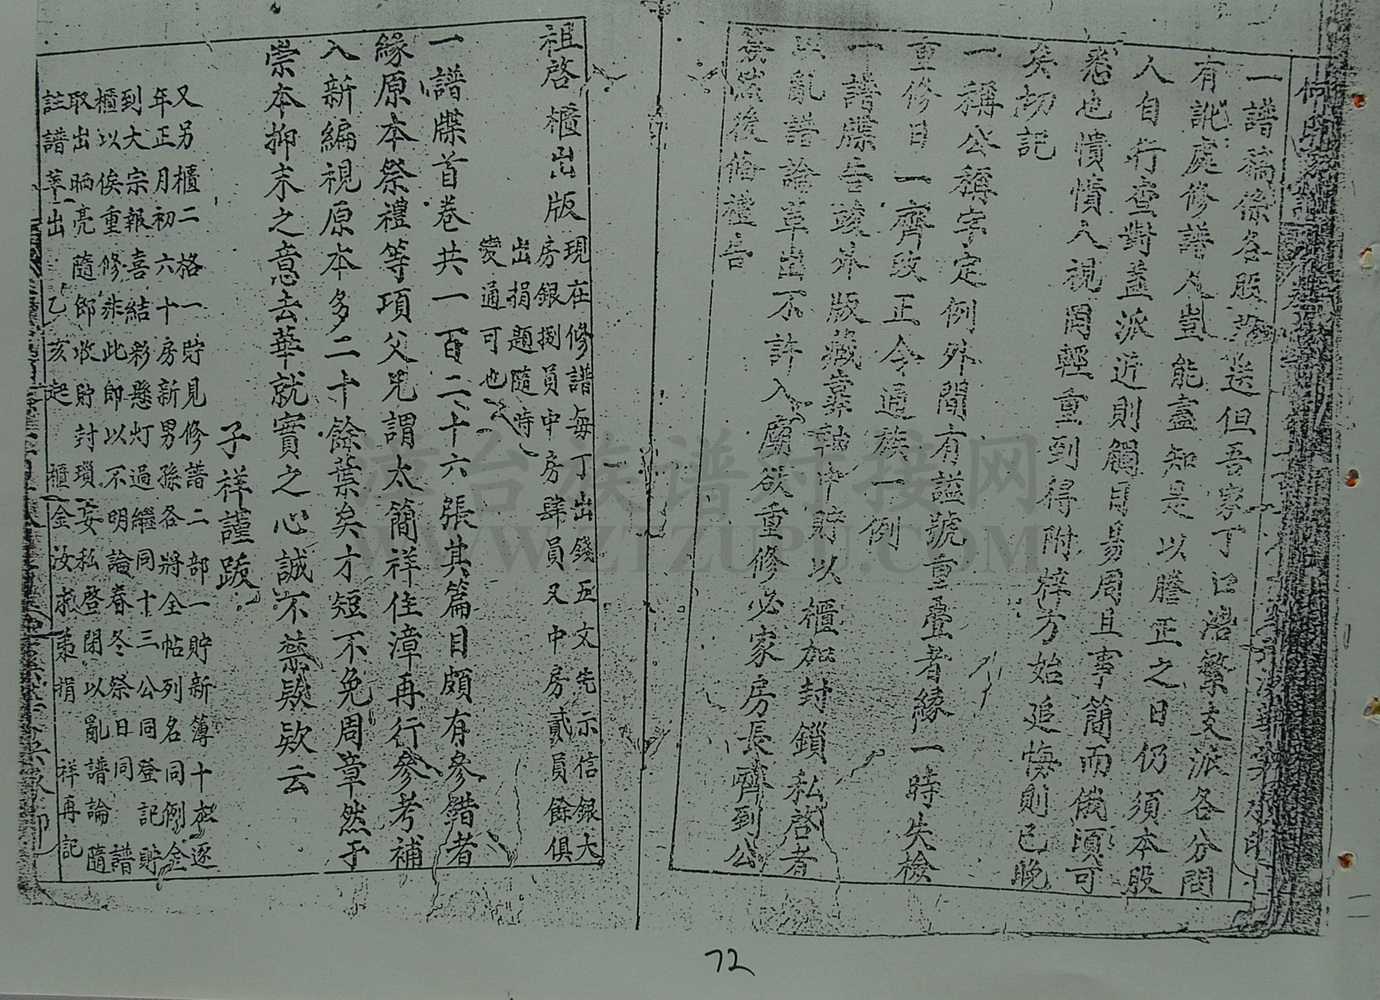 一譜稿係各股送但吾家丁口浩繁支派各分間
有訛處修譜人豈能盡知是以謄正之日仍須本股
人自行查對蓋派近則觸目易周且事簡而俄頃可
悉也憒憒人視罔輕重到得附梓方始追悔則已晚
矣切記
一稱公稱字定例外間有諡號重疊者緣一時失檢
重修日一齊改正今通族一例
一譜牒告竣外版藏龕中貯以櫃加封鎖私啓者
以亂譜論革出不許入廟欲重修必家房長齊到公
然後備禮告
祖啓櫃出版
現在修譜每丁出錢五文先示信銀大
房銀捌員中房肆員又中房貳員餘俱
出捐題隨時
變通可也
一譜牒首卷共一百二十六張其篇目頗有參錯者
緣原本祭禮等項父兄謂太簡祥住漳再行參考補
入新編視原本多二十餘葉矣才短不免周章然于
崇本抑末之意去華就實之心誠不禁欵欵云
子祥謹跋
又另櫃二格一貯見修譜二部一貯新簿十本逐
年正月初六十房新男孫各將全帖列名同例金
到大宗報喜結彩懸灯過繼同十三公同登記貯
櫃以俟重修非此即以不明論春冬祭日同譜
取出晒亮隨即收貯封瑣妄私啓閉以亂譜論隨
註譜革出 乙亥起 櫃金汝成策捐 祥再記
72
漳台族谱对接网
WWW.ZTZUPU.COM